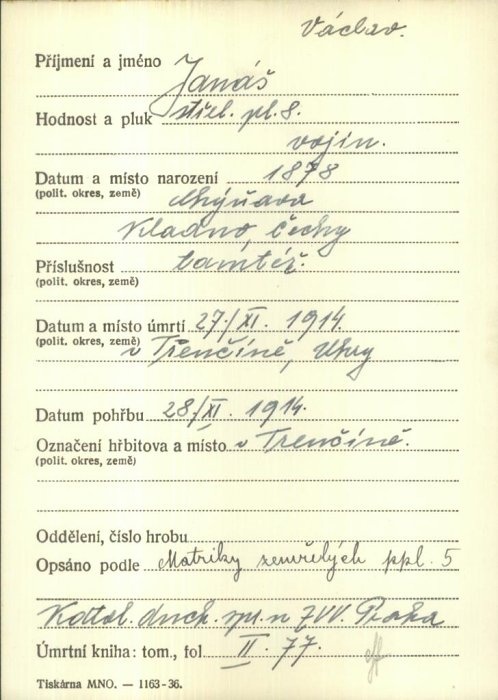 Václav.
Příjmení a jméno Janáš
Hodnost a pluk střel. pl. 8.
vojín.
Datum a místo narození 1878
(polit. okres, země) Chýňava
Kladno, Čechy
Příslušnost tamtéž.
(polit. okres, země)
Datum a místo úmrtí 27/XI. 1914.
(polit. okres, země) v Trenčíně, Uhry
Datum pohřbu 28/XI. 1914.
Označení hřbitova a místo v Trenčíně.
(polit. okres, země)
Oddělení, číslo hrobu
Opsáno podle Matriky zemřelých ppl. 5
duch. Praha
Úmrtní kniha: tom., fol. II. 77.
Tiskárna MNO. — 1163-36.